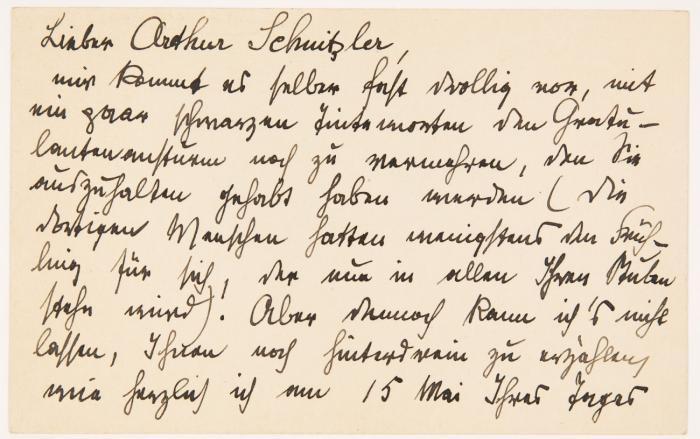 Lieber Arthur Schnitzler,
mir kommt es selber fast drollig vor, mit
ein paar schwarzen Tinteworten den Gratu-
lantenansturm noch zu vermehren, den Sie
auszuhalten gehabt haben werden (die
dortigen Menschen hatten wenigstens den Früh-
ling für sich, der nun in allen Ihren Stuben
stehn wird)! Aber dennoch kann ich's nicht
lassen, Ihnen noch hinterdrein zu erzählen,
wie herzlich ich am 15 Mai Ihres Tages